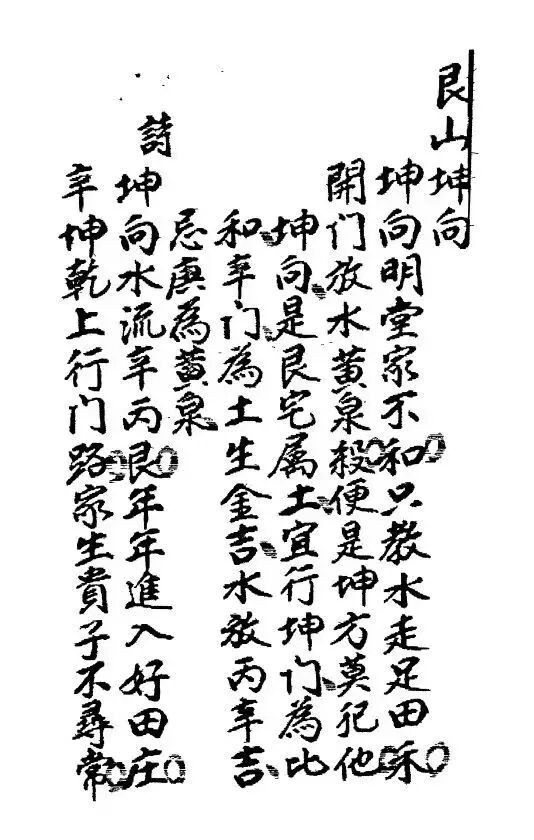 艮山坤向
坤向明堂家不和只教水走足田禾
開门放水黄泉殺便是坤方莫犯他
坤向是艮宅属土宜行坤门為比
和辛门為土生金吉水放丙辛吉
忌庚為黄泉
詩
坤向水流辛丙艮年年進入好田庄
辛坤乾上行门路家生貴子不尋常